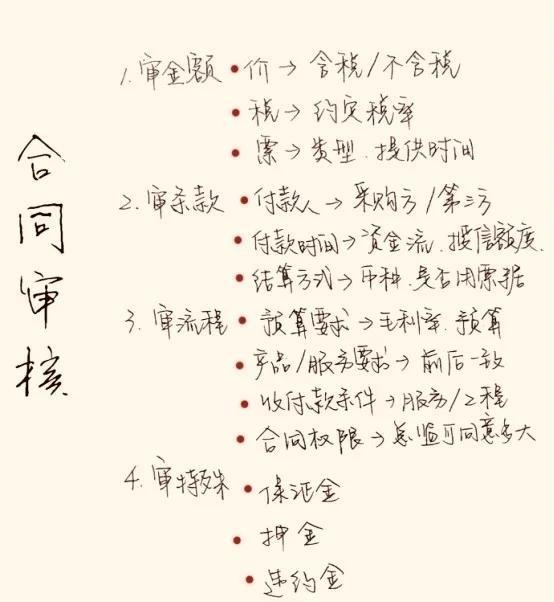 合同审核
1.审金额 • 价→含税/不含税
• 税→约定税率
• 票→类型、提供时间
2.审条款 • 付款人→采购方/第三方
• 付款时间→资金流、授信额度、
• 结算方式→币种、是否用票据
3.审流程 • 预算要求→毛利率、预算
• 产品/服务要求→前后一致
• 收付款条件→服务/工程
• 合同权限→总监可同意多大
4.审特殊 • 保证金
• 押金
• 违约金